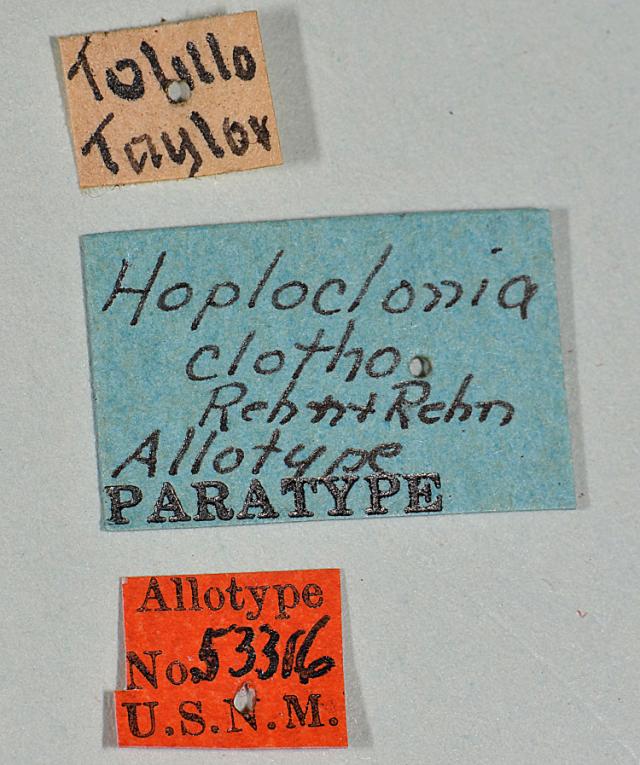 Taylor
Hoploclonia
clotho
Rehn + Rehn
Allotype
PARATYPE
Allotype
No. 53316
U.S.N.M.